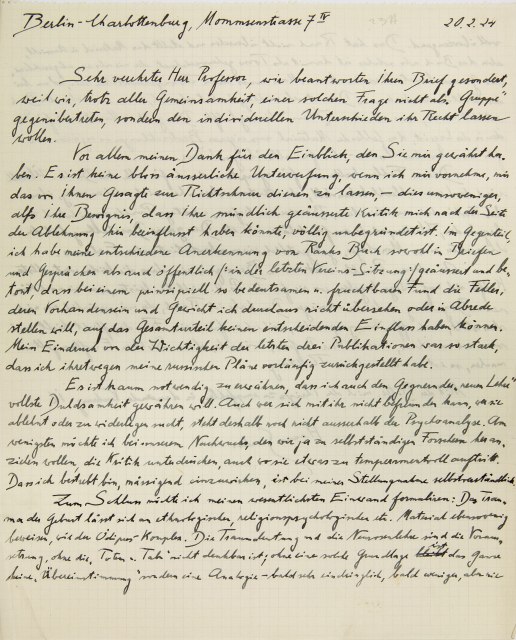 Berlin-Charlottenburg, Mommsenstrasse 7 IV 20.2.24
Sehr verehrter Herr Professor, wir beantworten Ihren Brief gesondert,
weil wir, trotz aller Gemeinsamkeit, einer solchen Frage nicht als „Gruppe"
gegenübertreten, sondern den individuellen Unterschieden ihr Recht lassen
wollen.
Vor allem meinen Dank für den Einblick, den Sie mir gewährt ha-
ben. Es ist keine bloss äusserliche Unterwerfung, wenn ich mir vornehme, mir
das von Ihnen Gesagte zur Richtschnur dienen zu lassen, – dies umsoweniger,
als Ihre Besorgnis, dass Ihre mündlich geäusserte Kritik mich nach der Seite
der Ablehnung hin beeinflusst haben könnte, völlig unbegründet ist. Im Gegenteil,
ich habe meine entschiedene Anerkennung von Ranks Buch sowohl in Briefen
und Gesprächen als auch öffentlich /in der letzten Vereins-Sitzung/ geäussert und be-
tont, dass bei einem prinzipiell so bedeutsamen u. fruchtbaren Fund die Fehler,
deren Vorhandensein und Gewicht ich durchaus nicht übersehen oder in Abrede
stellen will, auf das Gesamturteil keinen entscheidenden Einfluss haben können.
Mein Eindruck von der Wichtigkeit der letzten drei Publikationen war so stark,
dass ich ihretwegen meine russischen Pläne vorläufig zurückgestellt habe.
Es ist kaum notwendig zu erwähnen, dass ich auch den Gegnern der „neuen Lehre"
vollste Duldsamkeit gewähren will. Auch wer sich mit ihr nicht befreunden kann, wer sie
ablehnt oder zu widerlegen sucht, steht deshalb noch nicht ausserhalb der Psychoanalyse. Am
wenigsten möchte ich bei unserem Nachwuchs, den wir ja zu selbstständigen Forschern heran-
ziehen wollen, die Kritik unterdrücken, auch wo sie etwas zu temperamentvoll auftritt.
Dass ich bestrebt bin, mässigend einzuwirken, ist bei meiner Stellungnahme selbstverständlich.
Zum Schluss möchte ich meinen wesentlichsten Einwand formulieren: Das Trau-
ma der Geburt lässt sich an ethnologischem, religionspsychologischem etc. Material ebensowenig
beweisen, wie der Ödipus-Komplex. Die Traumdeutung und die Neurosenlehre sind die Voraus-
setzung, ohne die „Totem u. Tabu" nicht denkbar ist; ohne eine solche Grundlage ist das ganze
keine „Übereinstimmung" sondern eine Analogie – bald sehr eindringlich, bald weniger, aber nie